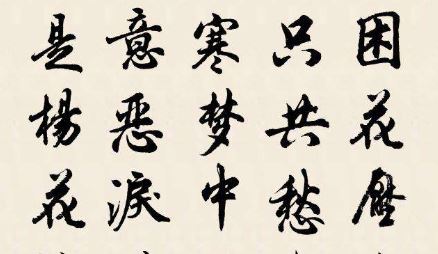 困花壓
只共愁
寒梦中
意恶淚
是楊花